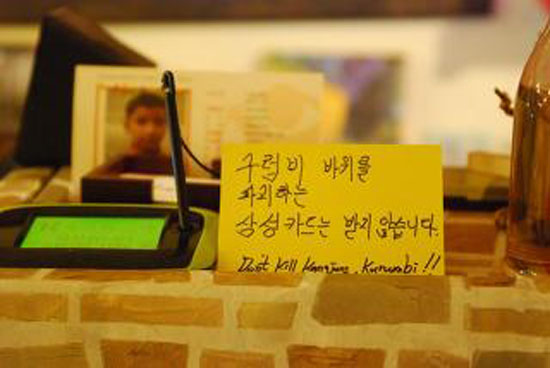 구럼비 바위를
파괴하는
삼성카드는 받지 않습니다.
Don't Kill Kangjung, Kurumbi!!